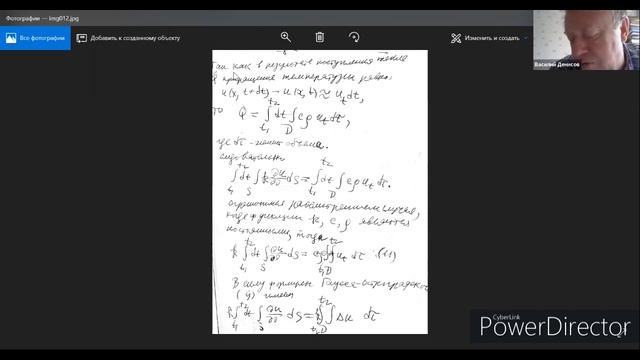 Фотографии — img012.jpg
Все фотографии
Добавить к созданному объекту
Изменить и создать
Василий Денисов
Так как в результате поступления тепла
приращение температуры равно
u(x, t+dt) − u(x, t) ≈ u_t dt,
то Q = ∫_{t₁}^{t₂} dt ∫_D cρ u_t dτ,
где dτ - объема.
следовательно
∫_{t₁}^{t₂} dt ∫_S k ∂u/∂ν ds = ∫_{t₁}^{t₂} dt ∫_D cρ u_t dτ.
ограничимся рассмотрением случая,
когда функции k, c, ρ являются
постоянными, тогда
k ∫_{t₁}^{t₂} dt ∫_S ∂u/∂ν ds = u_t dτ (11)
В силу формулы Гаусса-Остроградского
имеем
k ∫_{t₁}^{t₂} dt ∫_S ∂u/∂ν ds = ∫ Δu dτ
CyberLink
PowerDirector